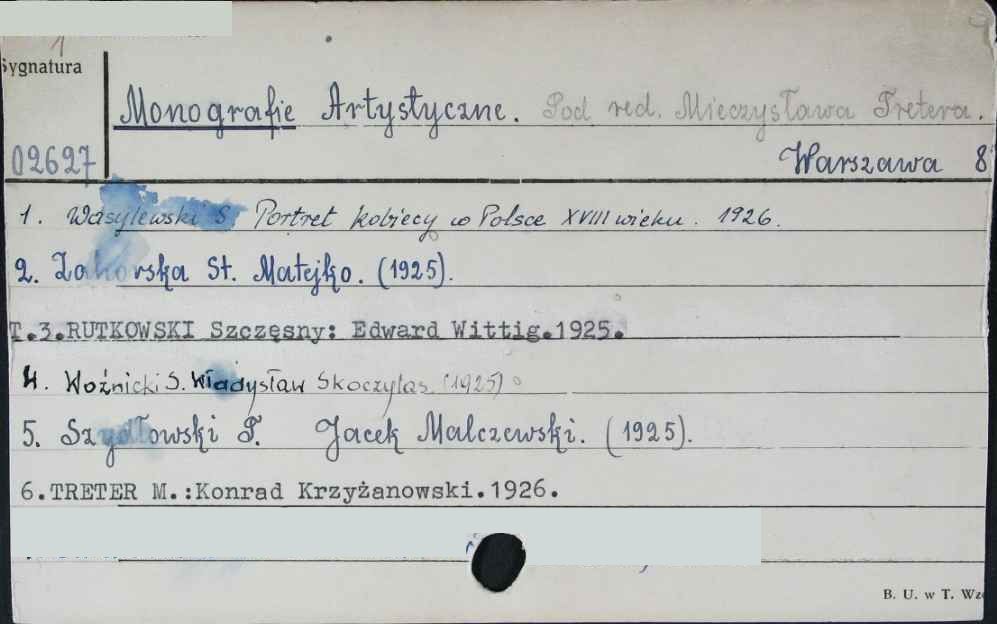 1
Sygnatura
Monografie Artystyczne. Pod red. Mieczysława Tretera.
02627
Warszawa 8°
1. Wasylewski S. Portret kobiecy w Polsce XVIII wieku. 1926.
2. Zahorska St. Matejko. (1925).
T.3.RUTKOWSKI Szczęsny: Edward Wittig.1925.
4. Woźnicki S. Władysław Skoczylas. (1925)
5. Szydłowski T. Jacek Malczewski. (1925).
6.TRETER M.:Konrad Krzyżanowski.1926.
B. U. w T. Wzó